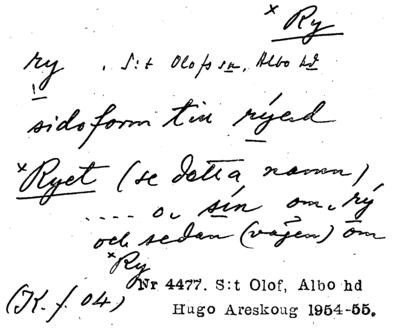 × Ry
ry . S:t Olofs sn, Albo hd
sidoform till rýed
×Ryet (se detta namn)
.... o, sín om, rý
och sedan (vägen) om
×Ry
(K. f. 04)
Nr 4477. S:t Olof, Albo hd
Hugo Areskoug 1954-55.